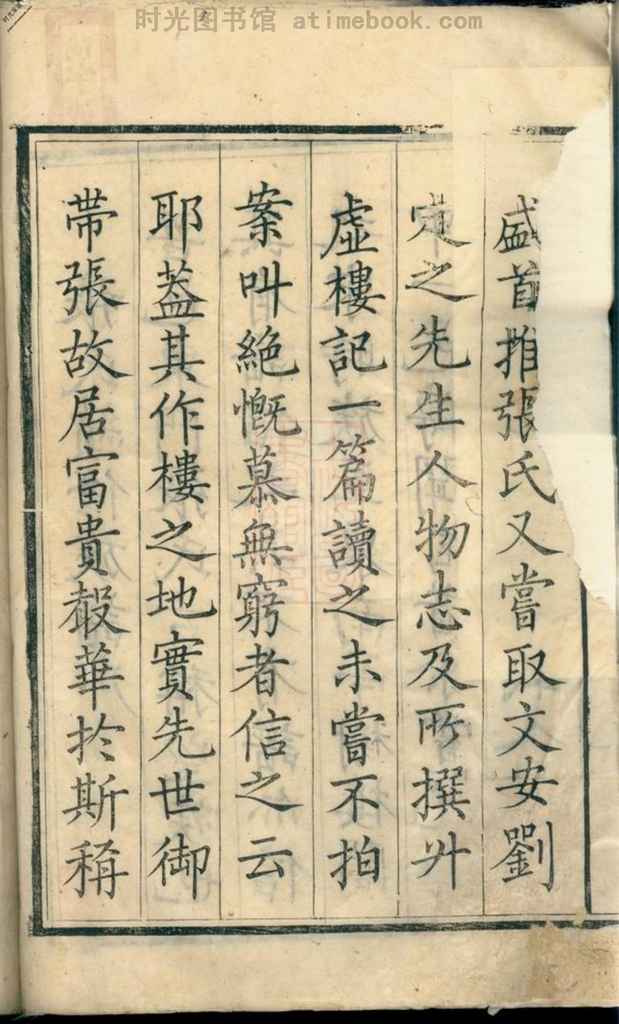 时光图书馆 atimebook.com
盛首推張氏又嘗取文安劉
定之先生人物志及所撰廾
虛樓記一篇讀之未嘗不拍
案叫絕慨慕無窮者信之云
耶葢其作樓之地實先世御
帶張故居富貴縠華扵斯稱